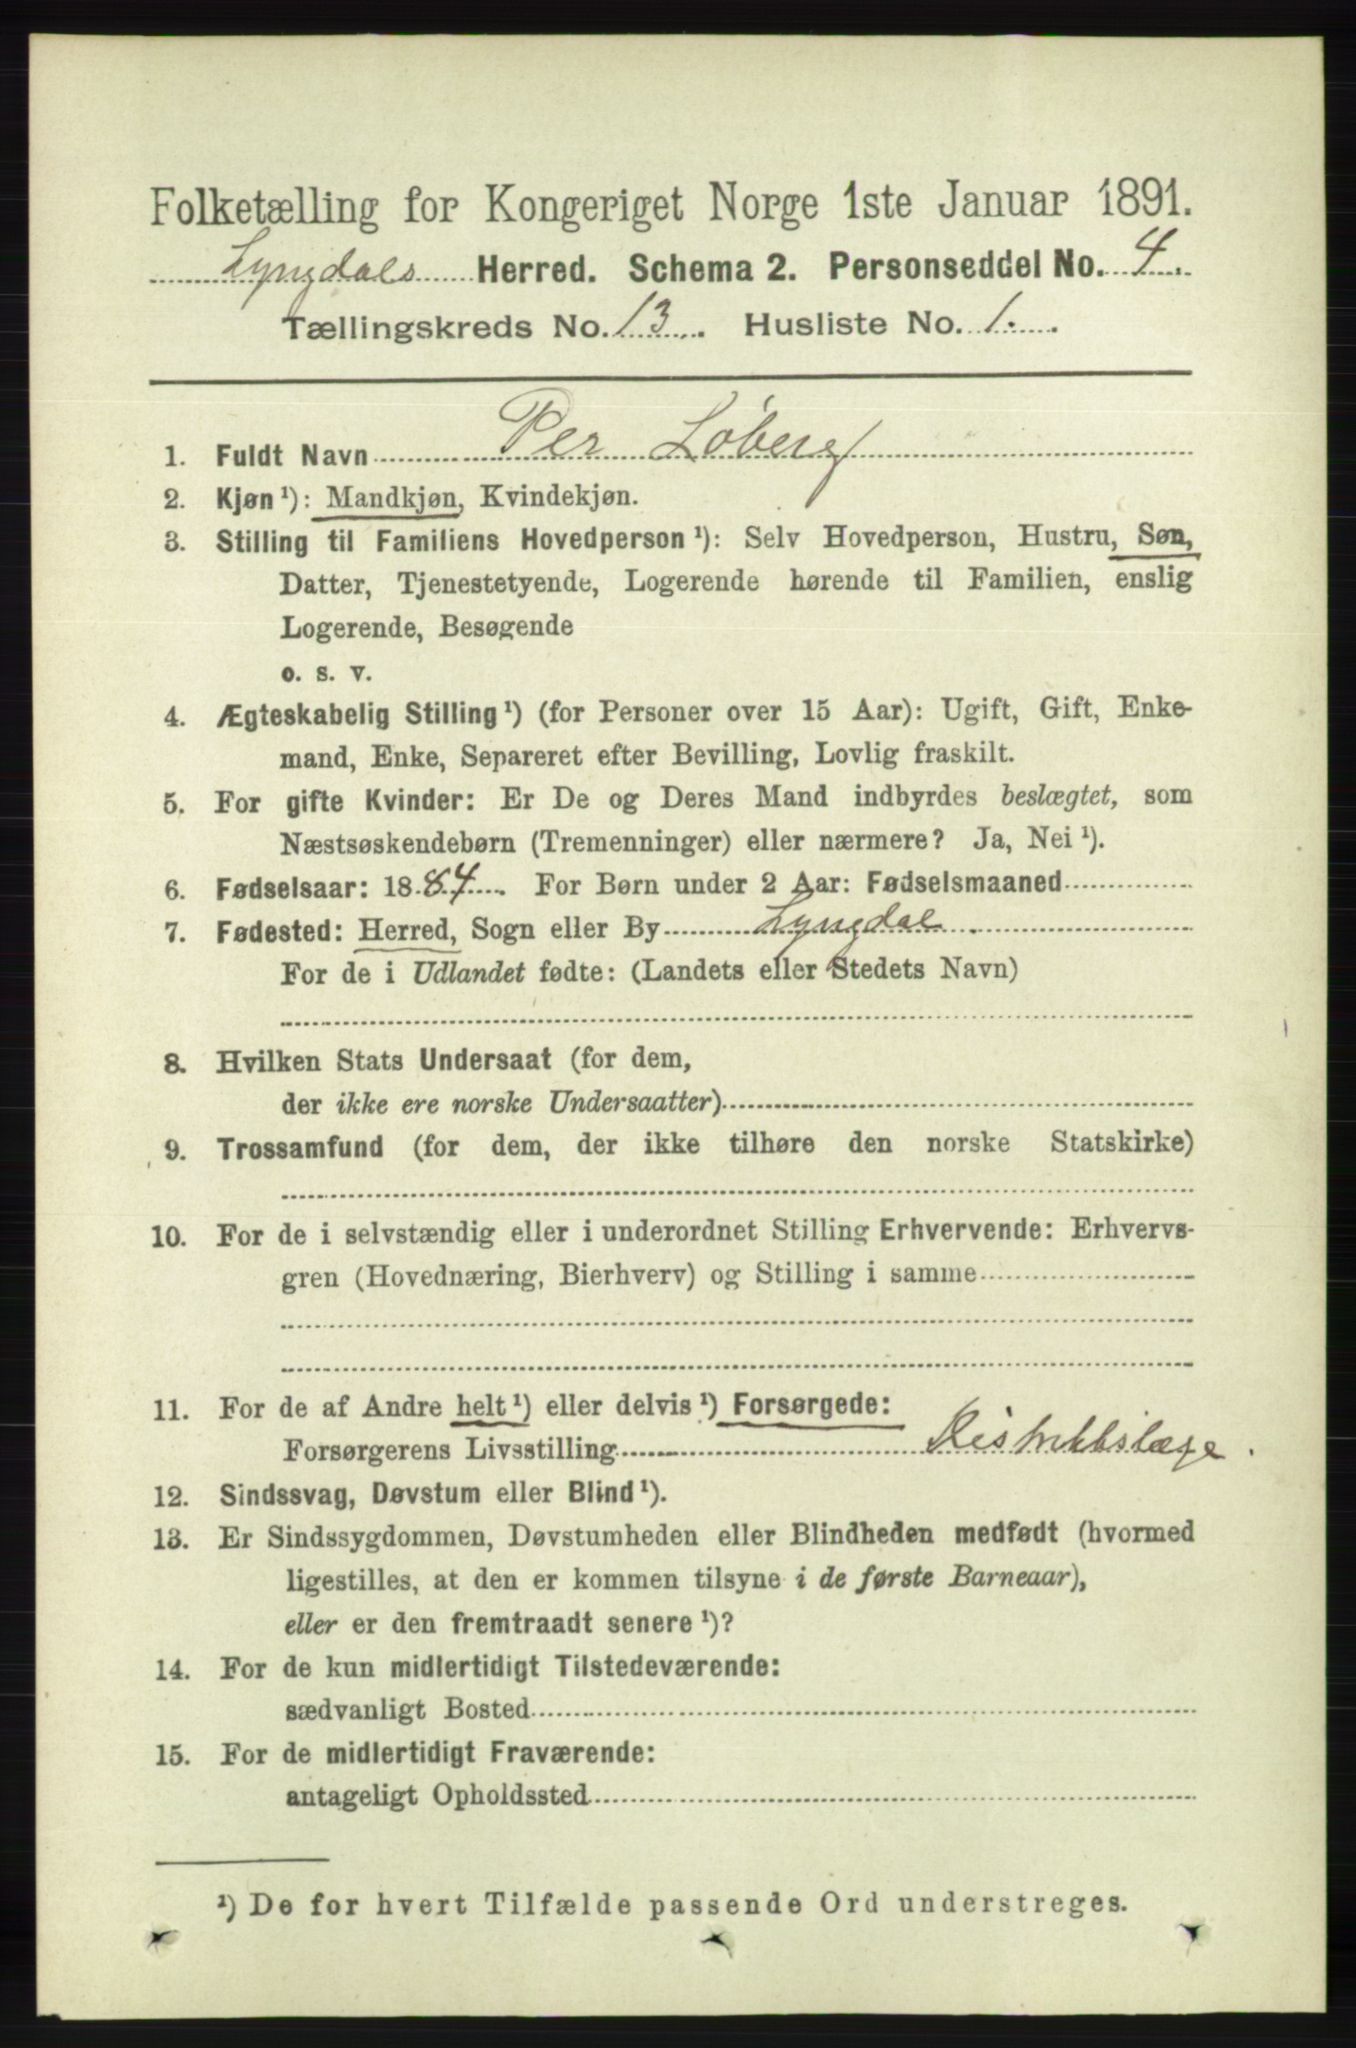 Folketælling for Kongeriget Norge 1ste Januar 1891.
Lyngdals Herred. Schema 2. Personseddel No. 4.
Tællingskreds No. 13. Husliste No. 1.
1. Fuldt Navn Per Løberg
2. Kjøn ¹): Mandkjøn, Kvindekjøn.
3. Stilling til Familiens Hovedperson ¹): Selv Hovedperson, Hustru, Søn,
Datter, Tjenestetyende, Logerende hørende til Familien, enslig
Logerende, Besøgende
o. s. v.
4. Ægteskabelig Stilling ¹) (for Personer over 15 Aar): Ugift, Gift, Enke-
mand, Enke, Separeret efter Bevilling, Lovlig fraskilt.
5. For gifte Kvinder: Er De og Deres Mand indbyrdes beslægtet, som
Næstsøskendebørn (Tremenninger) eller nærmere? Ja, Nei ¹).
6. Fødselsaar: 1884. For Børn under 2 Aar: Fødselsmaaned
7. Fødested: Herred, Sogn eller By Lyngdal.
For de i Udlandet fødte: (Landets eller Stedets Navn)
8. Hvilken Stats Undersaat (for dem,
der ikke ere norske Undersaatter)
9. Trossamfund (for dem, der ikke tilhøre den norske Statskirke)
10. For de i selvstændig eller i underordnet Stilling Erhvervende: Erhvervs-
gren (Hovednæring, Bierhverv) og Stilling i samme
11. For de af Andre helt ¹) eller delvis ¹) Forsørgede:
Forsørgerens Livsstilling Distriktslæge.
12. Sindssvag, Døvstum eller Blind ¹).
13. Er Sindssygdommen, Døvstumheden eller Blindheden medfødt (hvormed
ligestilles, at den er kommen tilsyne i de første Barneaar),
eller er den fremtraadt senere ¹)?
14. For de kun midlertidigt Tilstedeværende:
sædvanligt Bosted
15. For de midlertidigt Fraværende:
antageligt Opholdssted
¹) De for hvert Tilfælde passende Ord understreges.